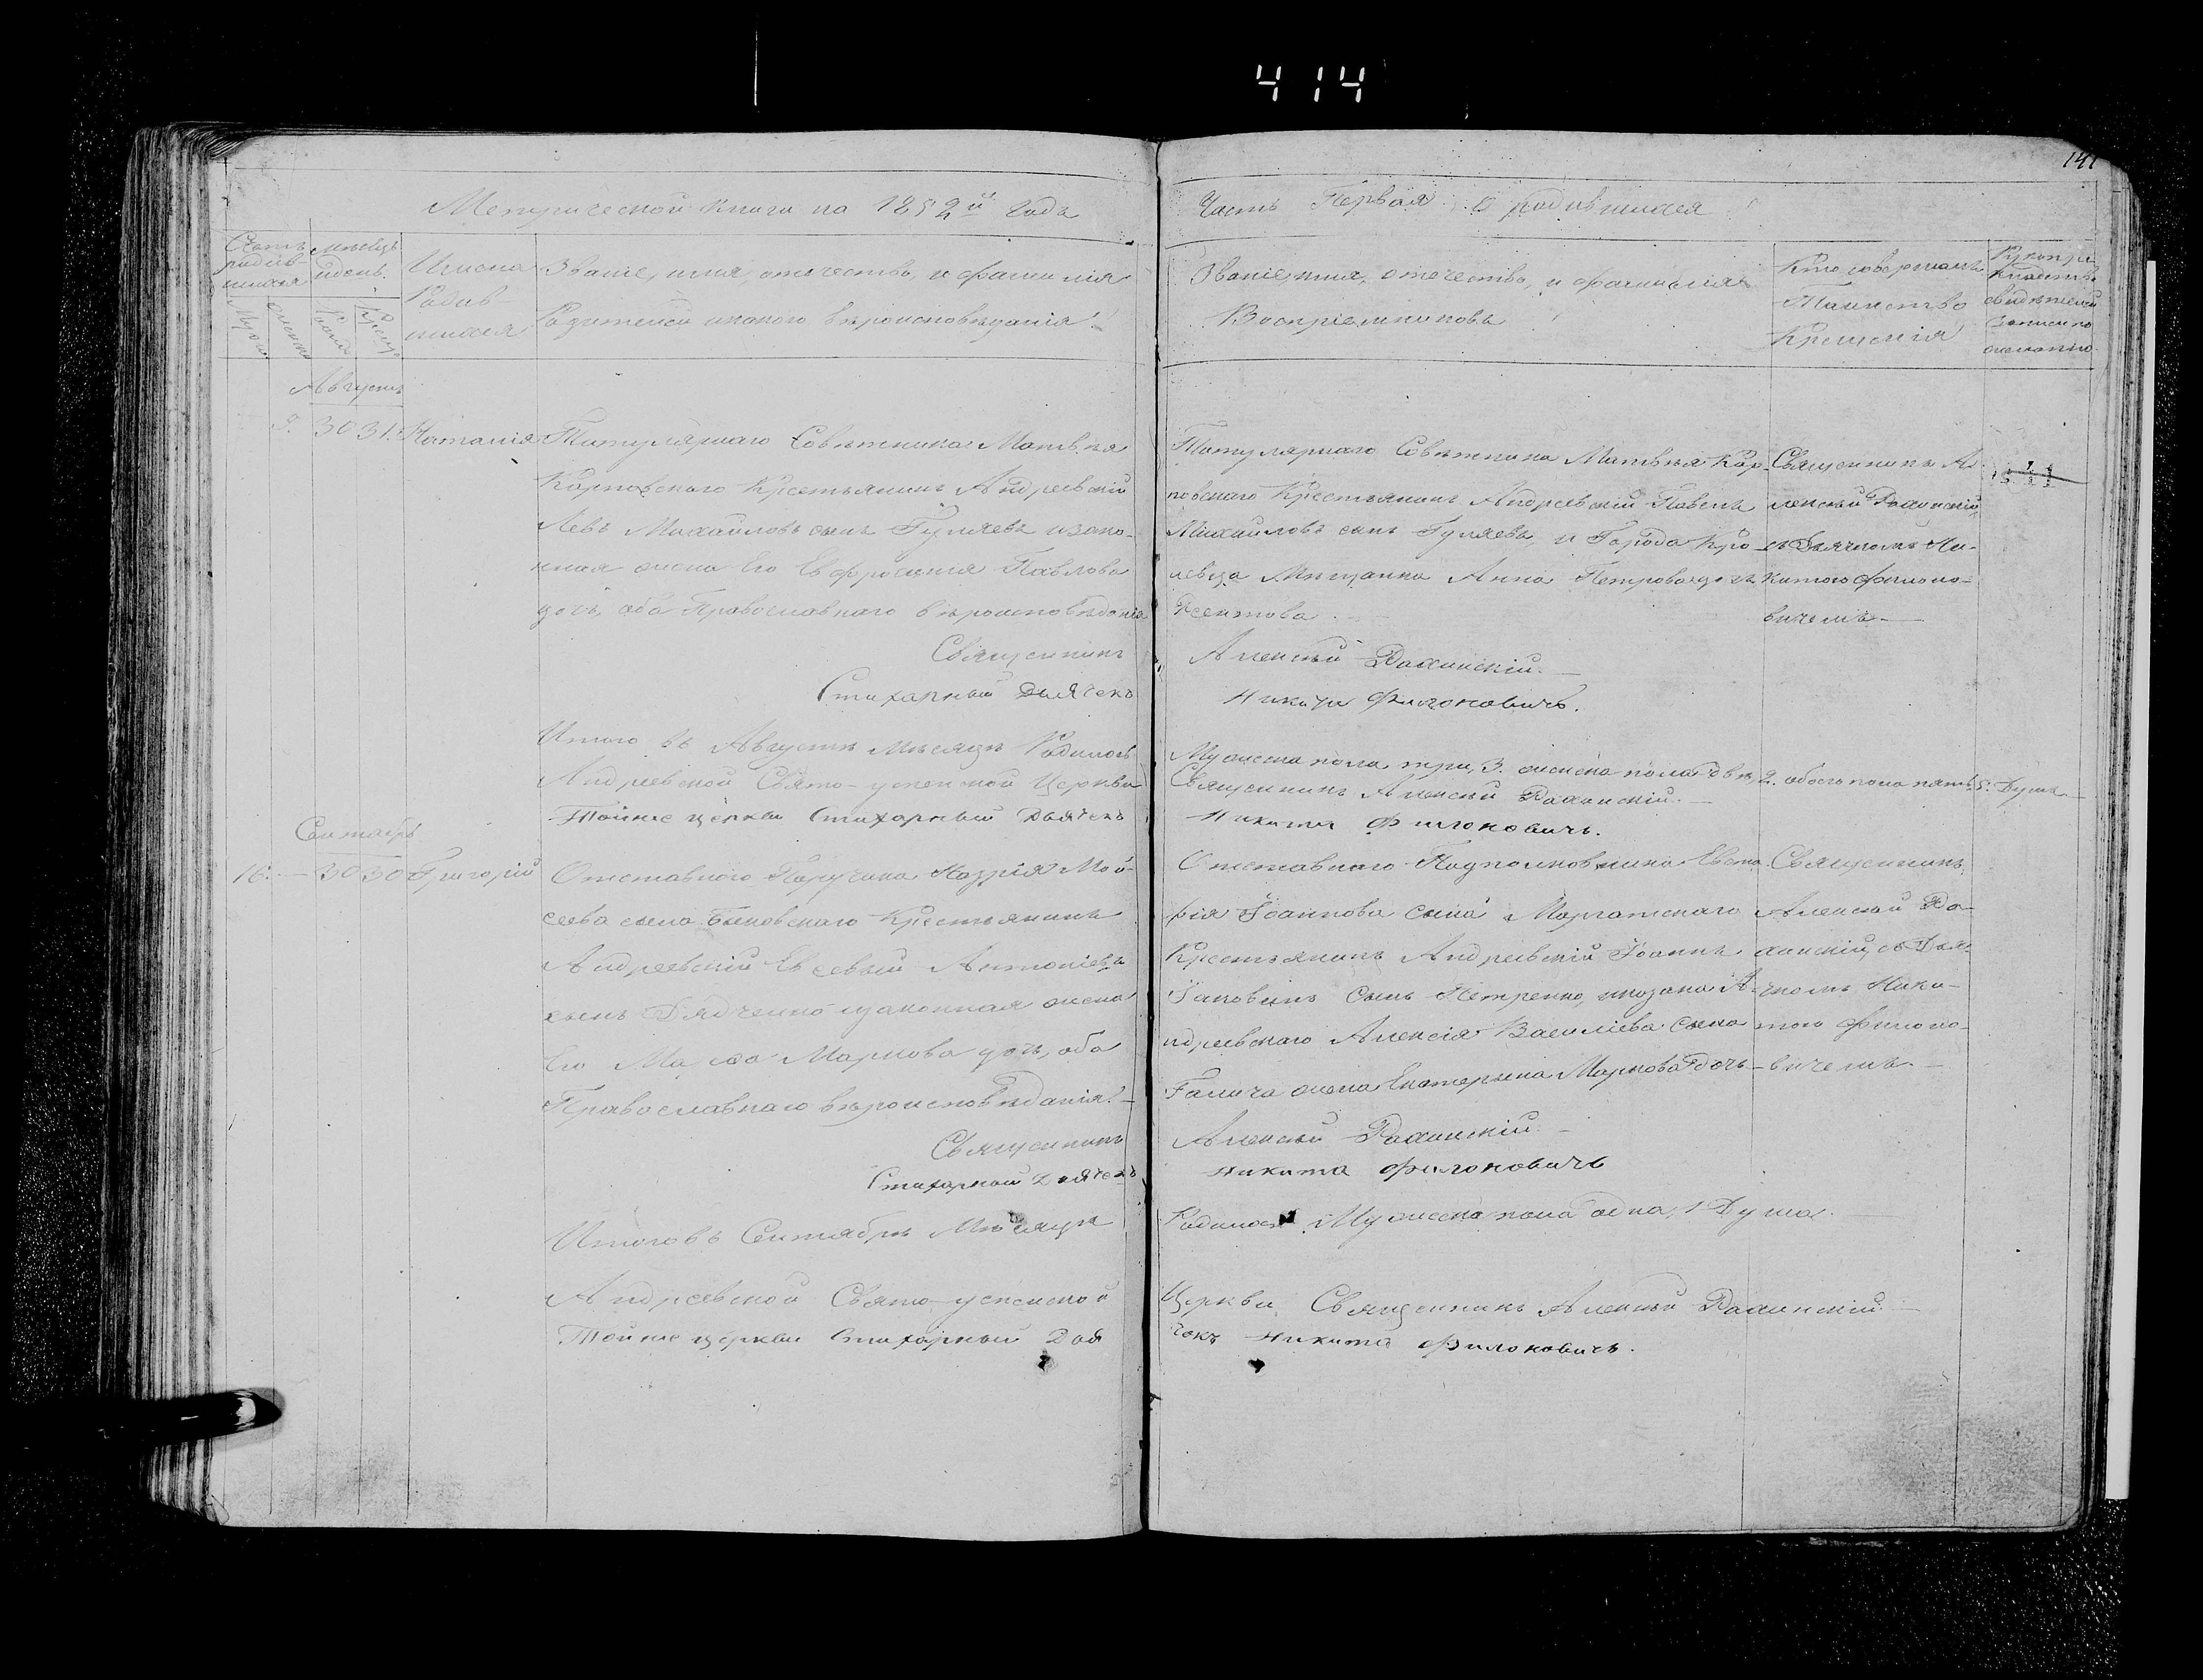 414
141
Метрической книги на 1852й годъ
Часть Первая о родившихся
Счетъ родив-шихся
Мужеска
Женска
Мѣсяцъ и день.
Рожд
Крещ
Имена Родив-шихся
Званіе, имя, отчество, и фамилія
Родителей и какого вѣроисповѣданія
Званіе, имя, отчество, и фамилія
Воспріемниковъ
Кто совершалъ
Таинство
Крещенія
Рукопри-
кладство
свидѣтелей
записи по
желанію.
Августъ
9. 30 31. Наталія
Титулярнаго Совѣтника Матвѣя
Карповскаго Крестьянинъ Андреевскій
Левъ Михаиловъ сынъ Гуляевъ и зако-
нная жена Его Евфросинія Павлова
дочь, оба Православнаго вѣроисповѣданія
Священникъ
Стихарный Дьячекъ
Титулярнаго Совѣтника Матвѣя Кар-
повскаго Крестьянинъ Андреевскій Павелъ
Михаиловъ сынъ Гуляевъ, и Города Кро-
левца Мѣщанка Анна Петрова дочь
Алексѣй Рахинскій.
Никита Филоновичъ.
Священникъ А-
лексѣй Рахинскій
съ Дьячкомъ Ни-
китою Филоно-
вичемъ.
Итого въ Августѣ мѣсяцѣ Родилось
Андреевской Свято-успенской Церкви
Тойже церкви Стихарный Дьячекъ
Мужеска пола три, 3. женска пола двѣ, 2. обоего пола пять, 5. Душъ
Священникъ Алексѣй Рахинскій.
Никита Филоновичъ.
Сентябрь
16. 30 30 Григорій
Отставнаго Поручика Назрія Мои-
сеева сына Быковскаго Крестьянинъ
Андреевскій Евсевій Антоніевъ
сынъ Дядченко и законная жена
Его Марѳа Маркова дочь, оба
Православнаго вѣроисповѣданія.
Священникъ
Стихарный Дьячекъ
Отставнаго Подполковника Евста-
фія Іоаннова сына Маркатскаго
Крестьянинъ Андреевскій Іоаннъ
Іаковлевъ сынъ Петренко, и козака А-
ндреевскаго Алексія Василіева сына
Галича жена Екатерина Маркова дочь
Алексѣй Рахинскій
Никита Филоновичъ
Священникъ
Алексѣй Ра-
хинскій, съ Дья-
чкомъ Ники-
тою Филоно-
вичемъ.
Итого въ Сентябрѣ Мѣсяцѣ
Родилось Мужеска пола одна, 1 Душа.
Андреевской Свято-успенской
Церкви Священникъ Алексѣй Рахинскій
Тойже церкви Стихарный Дья
чекъ Никита Филоновичъ.